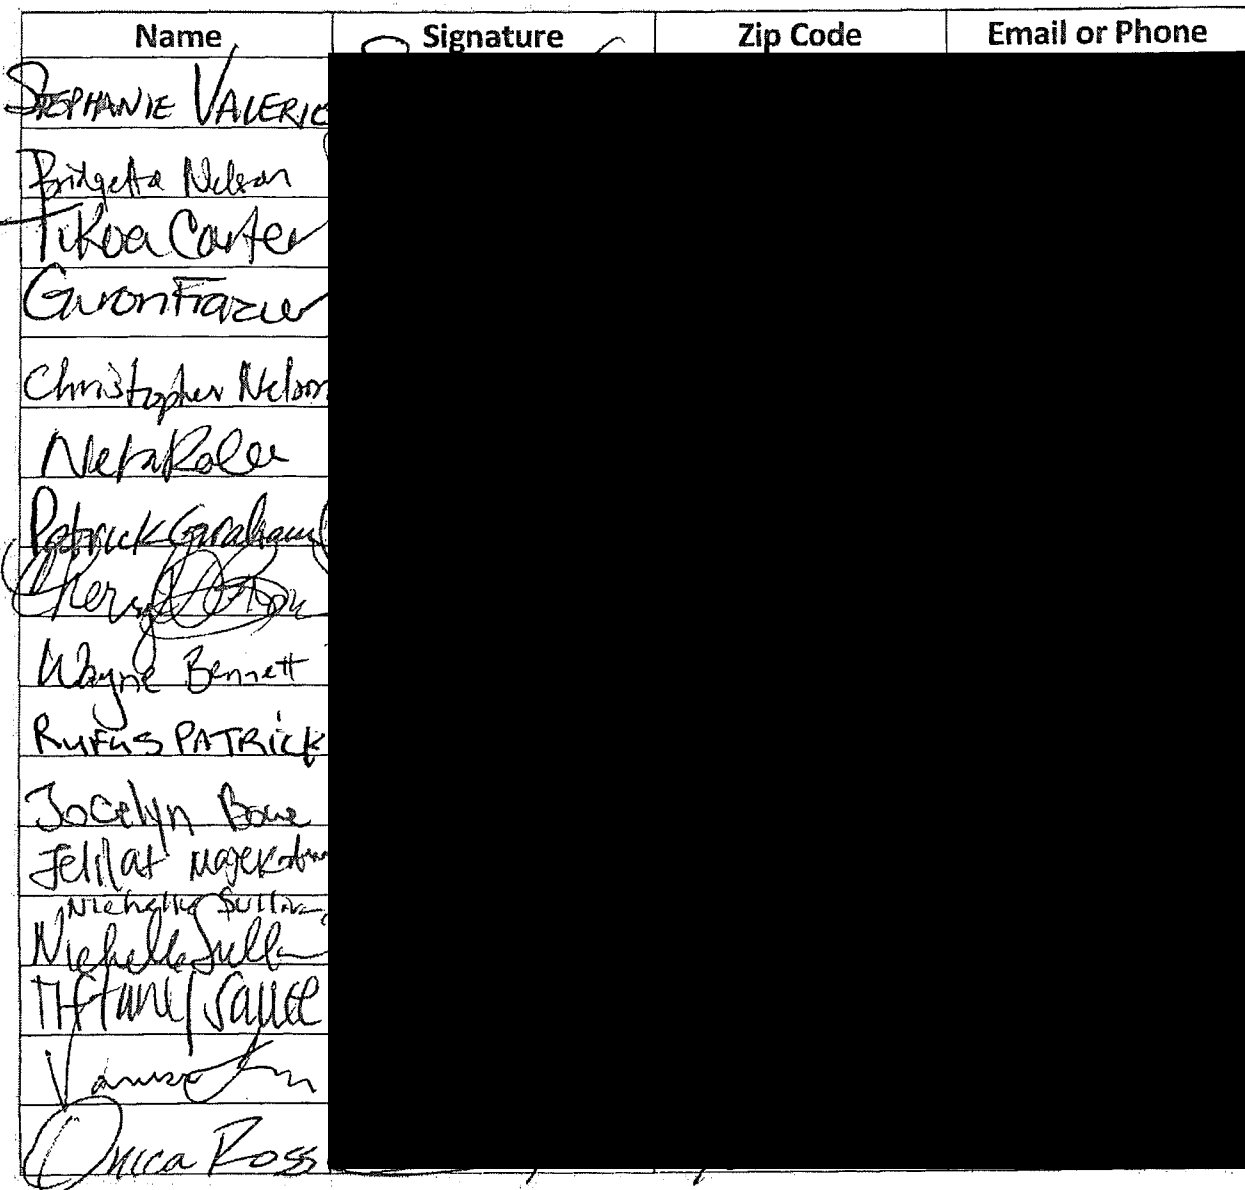 Name Signature Zip Code Email or Phone
STEPHANIE VALERIO
Bridgetta Nelson
Tikoa Carter
Guron Frazier
Christopher Nelson
Neta
Patrick Graham
Cheryl
Wayne Bennett
RUFUS PATRICK
Jocelyn Bowe
Jelilat
Nichelle Sullivan
Nichelle Sullivan
Tiffany
Vanessa
Onica Ross